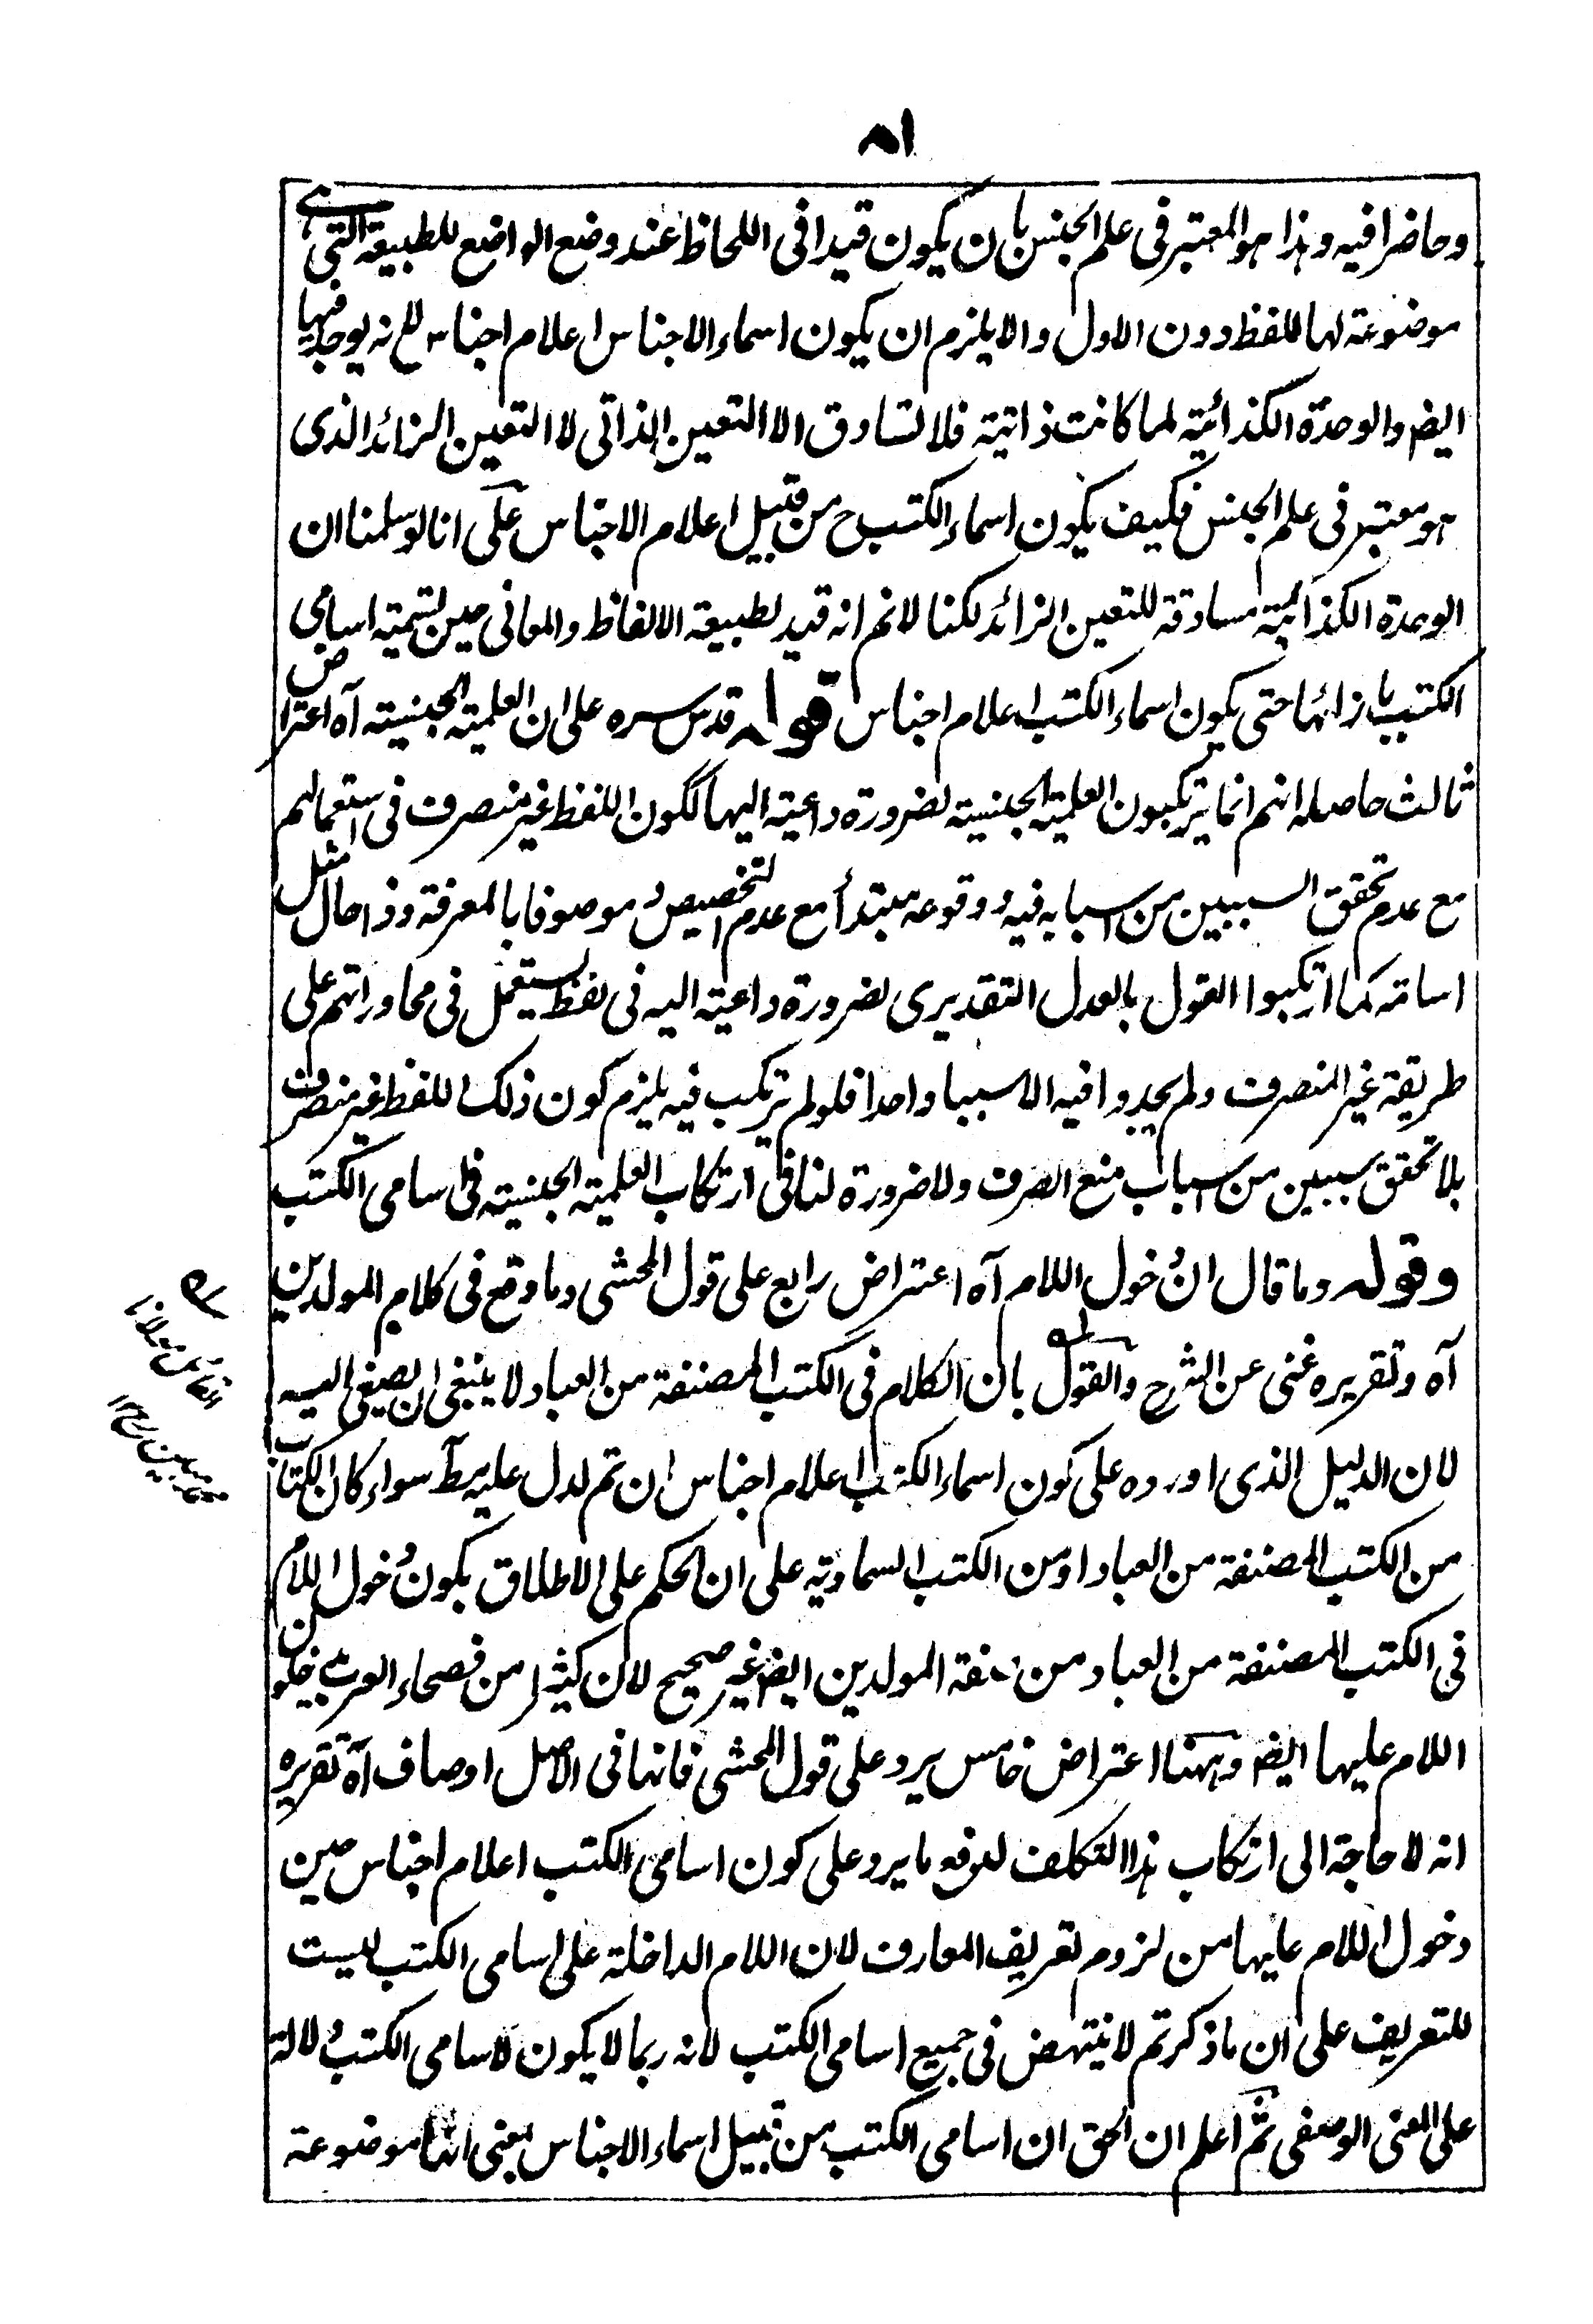 ٨١
وحاضرا فيه وهذا هو المعتبر فى علم الجنس بان يكون قيدا فى اللحاظ عند وضع الواضع للطبيعة التى هى
موضوعة لها للفظ دون الاول والا يلزم ان يكون اسماء الاجناس اعلام اجناس لانه يوجد فيها
ايضا والوحدة الكذائية لما كانت ذاتية فلا تساوق الا التعين الذاتى لا التعين الزائد الذى
هو معتبر فى علم الجنس فكيف يكون اسماء الكتب ح من قبيل اعلام الاجناس على انا لو سلمنا ان
الوحدة الكذائية مساوقة للتعين الزائد لكنا لانم انه قيد لطبيعة الالفاظ والمعانى حين تسمية اسامى
الكتب بازائها حتى يكون اسماء الكتب اعلام اجناس قوله قدس سره على ان العلمية الجنسية آه اعتراض
ثالث حاصله انهم انما يرتكبون العلمية الجنسية لضرورة داعية اليها لكون اللفظ غير منصرف فى استعمالهم
مع عدم تحقق السببين من اسبابه فيه ووقوعه مبتدأ مع عدم التخصيص وموصوفا بالمعرفة وذا حال مثل
اسامة كما ارتكبوا القول بالعدل التقديرى لضرورة داعية اليه فى لفظ يستعمل فى محاوراتهم على
طريقة غير المنصرف ولم يجدوا فيه الا سببا واحدا فلو لم يرتكب فيه يلزم كون ذلك اللفظ غير منصرف
بلا تحقق سببين من اسباب منع الصرف ولا ضرورة لنا فى ارتكاب العلمية الجنسية فى اسامى الكتب
وقوله وما قال ان دخول اللام آه اعتراض رابع على قول المحشى وما وقع فى كلام المولدين
آه وتقريره غنى عن الشرح والقول بان الكلام فى الكتب المصنفة من العباد لا ينبغى ان يصغى اليه
لان الدليل الذى اورده على كون اسماء الكتب اعلام اجناس ان تم لدل عليه مطلقا سواء كان الكتاب
من الكتب المصنفة من العباد او من الكتب السماوية على ان الحكم على الاطلاق بكون دخول اللام
فى الكتب المصنفة من العباد من المولدين ايضا غير صحيح لان كثيرا من فصحاء العرب يدخلون
اللام عليها ايضا وههنا اعتراض خامس يرد على قول المحشى فانها فى الاصل اوصاف آه تقريره
انه لا حاجة الى ارتكاب هذا التكلف لدفع ما يرد على كون اسامى الكتب اعلام اجناس حين
دخول اللام عليها من لزوم تعريف المعارف لان اللام الداخلة على اسامى الكتب ليست
للتعريف على ان ما ذكرتم لا ينتهض فى جميع اسامى الكتب لانه ربما لا يكون لاسامى الكتب دلالة
على المعنى الوصفى ثم اعلم ان الحق ان اسامى الكتب من قبيل اسماء الاجناس بمعنى انها موضوعة
القائل مولانا
مبين رح ١٢